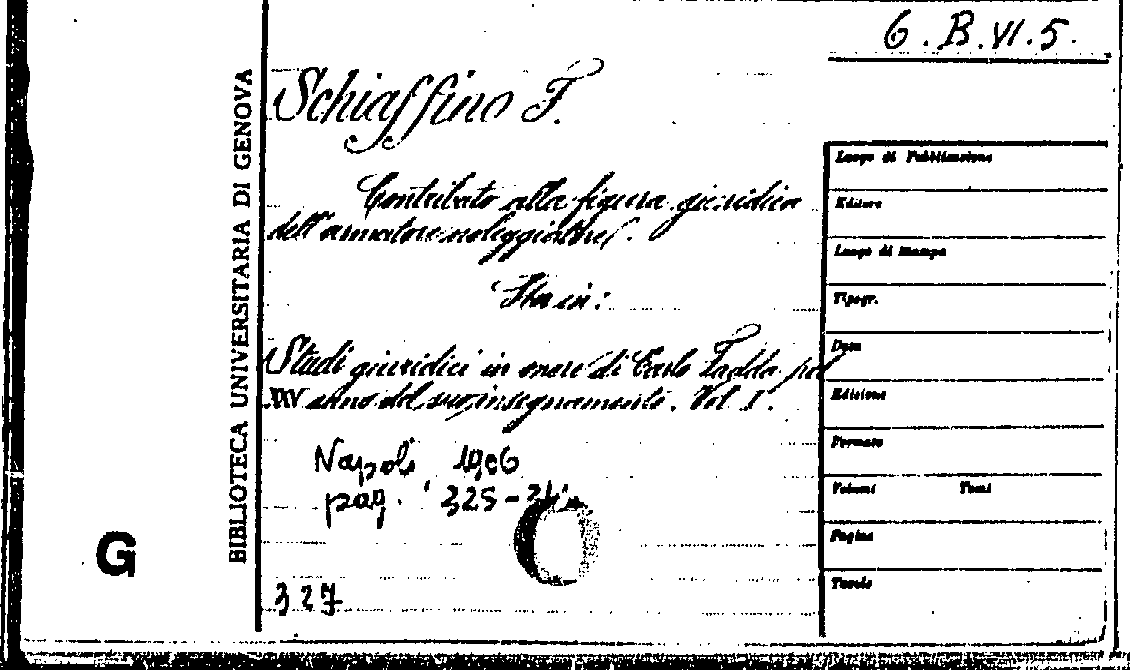 6.B.VI.5.
BIBLIOTECA UNIVERSITARIA DI GENOVA
Schiaffino F.
Contributo alla figura giuridica
dell'armatore noleggiatore.
Sta in:
Studi giuridici in onore di Carlo Fadda pel
XXV anno del suo insegnamento. Vol. I.
Napoli 1906
pag. 325-
327
G
Luogo di Pubblicazione
Editore
Luogo di Stampa
Tipogr.
Data
Edizione
Formato
Volumi Tomi
Pagine
Tavole